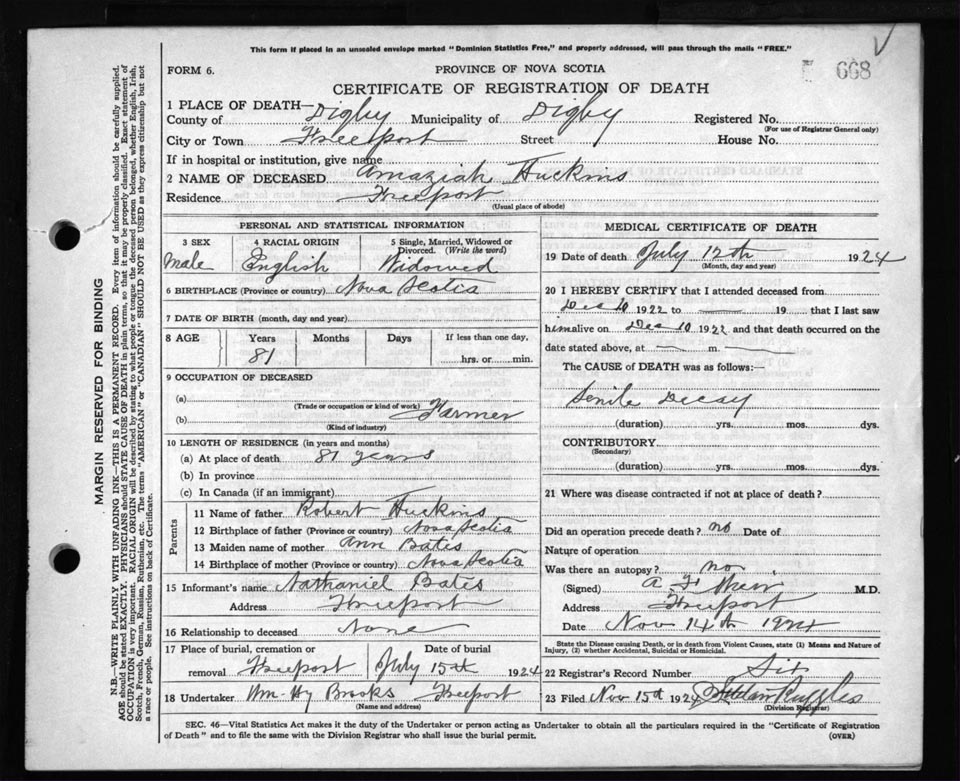 This form if placed in an unsealed envelope marked "Dominion Statistics Free," and properly addressed, will pass through the mails "FREE."
FORM 6.
PROVINCE OF NOVA SCOTIA
668
CERTIFICATE OF REGISTRATION OF DEATH
1 PLACE OF DEATH—
County of Digby Municipality of Digby Registered No.
(For use of Registrar General only)
City or Town Freeport Street House No.
If in hospital or institution, give name
2 NAME OF DECEASED Amaziah Huckins
Residence Freeport
(Usual place of abode)
PERSONAL AND STATISTICAL INFORMATION
3 SEX 4 RACIAL ORIGIN 5 Single, Married, Widowed or Divorced. (Write the word)
Male English Widowed
6 BIRTHPLACE (Province or country) Nova Scotia
7 DATE OF BIRTH (month, day and year)
8 AGE Years Months Days If less than one day,
81 hrs. or min.
9 OCCUPATION OF DECEASED
(a)
(Trade or occupation or kind of work)
(b) Farmer
(Kind of industry)
10 LENGTH OF RESIDENCE (in years and months)
(a) At place of death 81 years
(b) In province
(c) In Canada (if an immigrant)
Parents
11 Name of father Robert Huckins
12 Birthplace of father (Province or country) Nova Scotia
13 Maiden name of mother Ann Bates
14 Birthplace of mother (Province or country) Nova Scotia
15 Informant's name Nathaniel Bates
Address Freeport
16 Relationship to deceased None
17 Place of burial, cremation or Date of burial
removal Freeport July 15th 1924
18 Undertaker Wm. Hy Brooks Freeport
(Name and address)
MEDICAL CERTIFICATE OF DEATH
19 Date of death July 12th 1924
(Month, day and year)
20 I HEREBY CERTIFY that I attended deceased from
Dec 10 1922 to 19 that I last saw
him alive on Dec 10 1922 and that death occurred on the
date stated above, at m.
The CAUSE of DEATH was as follows:—
Senile Decay
(duration) yrs. mos. dys.
CONTRIBUTORY
(Secondary)
(duration) yrs. mos. dys.
21 Where was disease contracted if not at place of death?
Did an operation precede death? no Date of
Nature of operation
Was there an autopsy? no
(Signed) A. F. M.D.
Address Freeport
Date Nov 14th 1924
State the Disease causing Death, or in death from Violent Causes, state (1) Means and Nature of Injury, (2) whether Accidental, Suicidal or Homicidal.
22 Registrar's Record Number Six
23 Filed Nov 15th 1924 Ruggles
(Division Registrar)
SEC. 46—Vital Statistics Act makes it the duty of the Undertaker or person acting as Undertaker to obtain all the particulars required in the "Certificate of Registration
of Death" and to file the same with the Division Registrar who shall issue the burial permit.
(OVER)
MARGIN RESERVED FOR BINDING
N.B.—WRITE PLAINLY WITH UNFADING INK—THIS IS A PERMANENT RECORD. Every item of information should be carefully supplied.
AGE should be stated EXACTLY. PHYSICIANS should STATE CAUSE OF DEATH in plain terms, so that it may be properly classified. Exact statement of
OCCUPATION is very important. RACIAL ORIGIN will be described by stating to what people or tongue the deceased person belonged, whether English, Irish,
Scotch, French, German, Russian, Ruthenian, etc. The terms "AMERICAN" or "CANADIAN" SHOULD NOT BE USED as they express citizenship but not
a race or people. See instructions on back of Certificate.